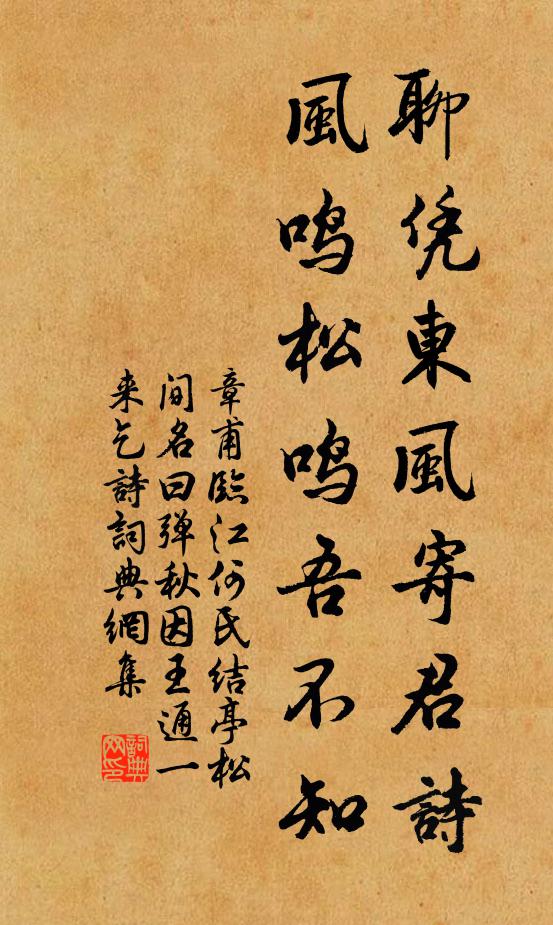 聊凭東風寄君詩
風鸣松鸣吾不知
章甫臨江何氏結亭松
间名曰弹秋因王通一
来乞詩詞典網集
詞典
网印